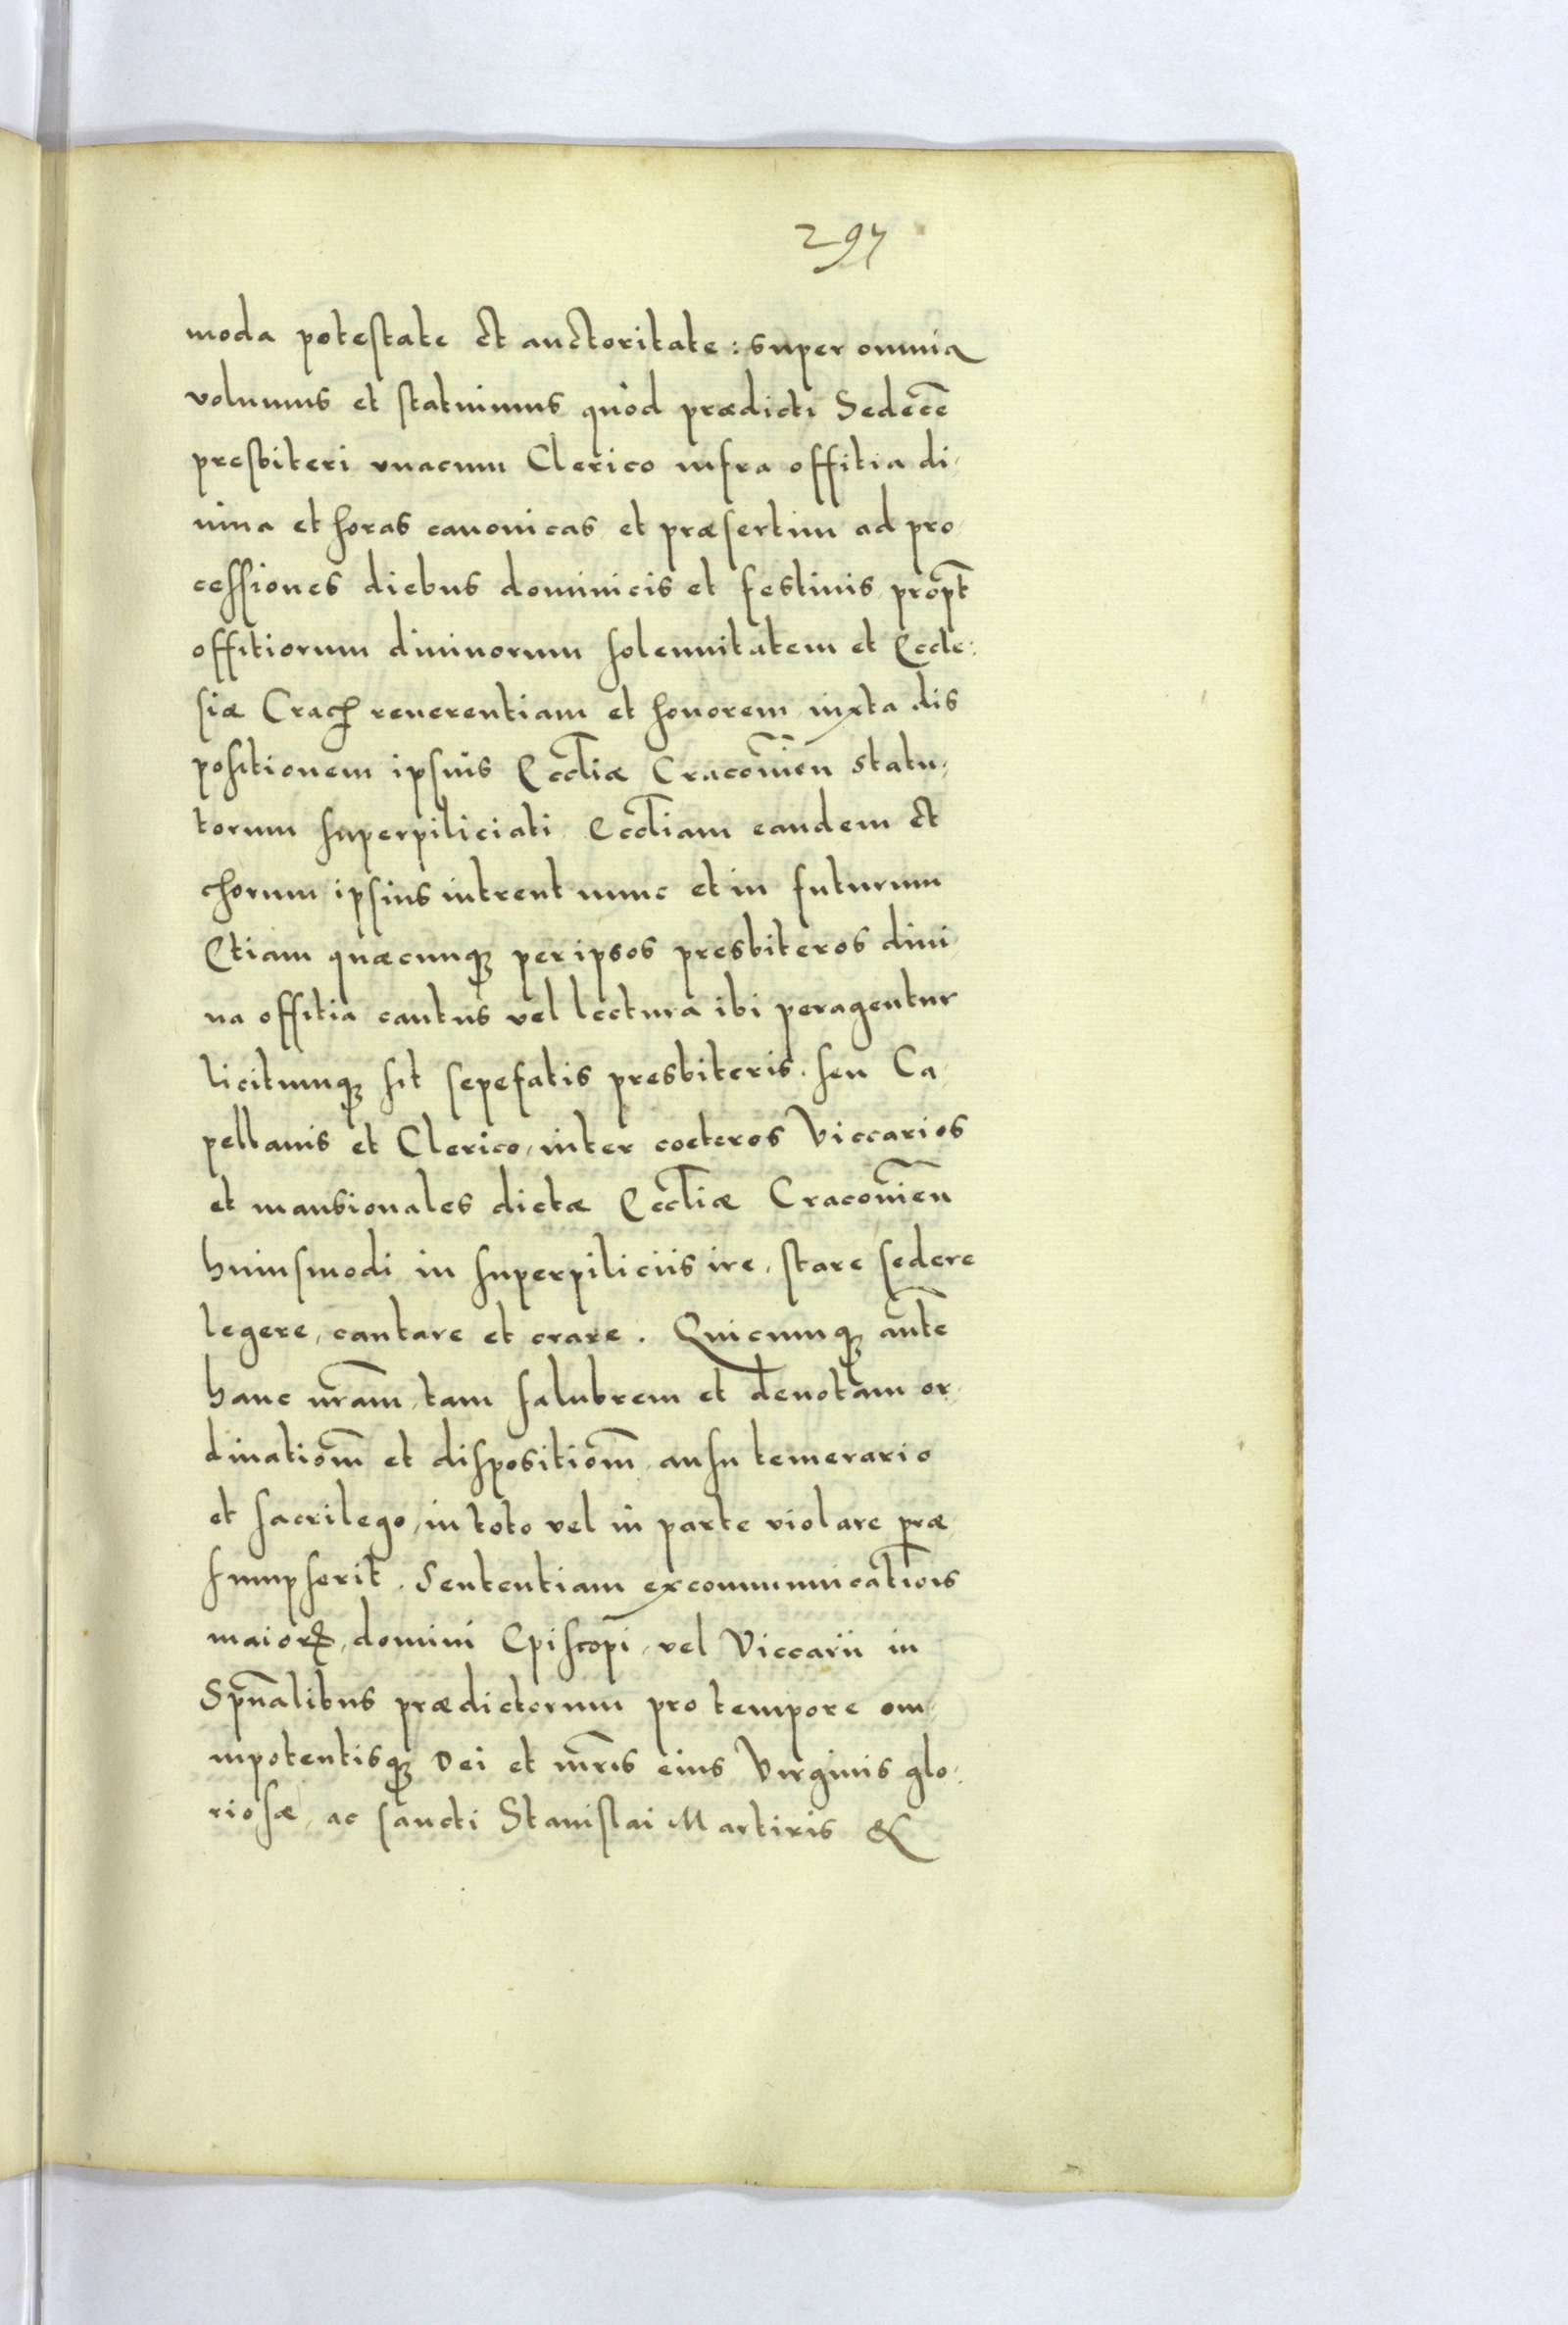 297
moda potestate et auctoritate: super omnia
volumus et statuimus quòd prædicti Sedecē
presbiteri vnacum Clerico infra offitia di,
uina et horas canonicas et præsertim ad pro,
cessiones diebus dominicis et festiuis, propt̄
offitiorum diuinorum solennitatem et Eccle,
siæ Crach reuerentiam et honorem iuxta dis
positionem ipsius Eccl̄iæ Cracouien̄ statu,
torum superpiliciati Eccl̄iam eandem et
chorum ipsius intrent nunc et in futurum
Etiam quæcunqꝫ per ipsos presbiteros diui
na offitia cantus vel lectura ibi peragentur
licitumqꝫ sit sepefatis presbiteris. seu Ca,
pellanis et Clerico, inter cœteros Viccarios
et mansionales dictæ Eccl̄iæ Cracouien̄
huiusmodi in superpiliciis ire, stare sedere
legere, cantare et orare. Quicunqꝫ aūte
hanc nr̄am, tam salubrem et deuotam or,
dinatiom̄ et dispositiom̄ ausu temerario
et sacrilego, in toto vel in parte violare præ,
sumpserit. Sententiam excommunicatiōis
maiorꝭ, domini Episcopi, vel Viccarii in
Spūalibus prædictorum pro tempore om,
nipotentisqꝫ Dei et mr̄is eius Virginis glo,
riosæ, ac sancti Stanislai Martiris &